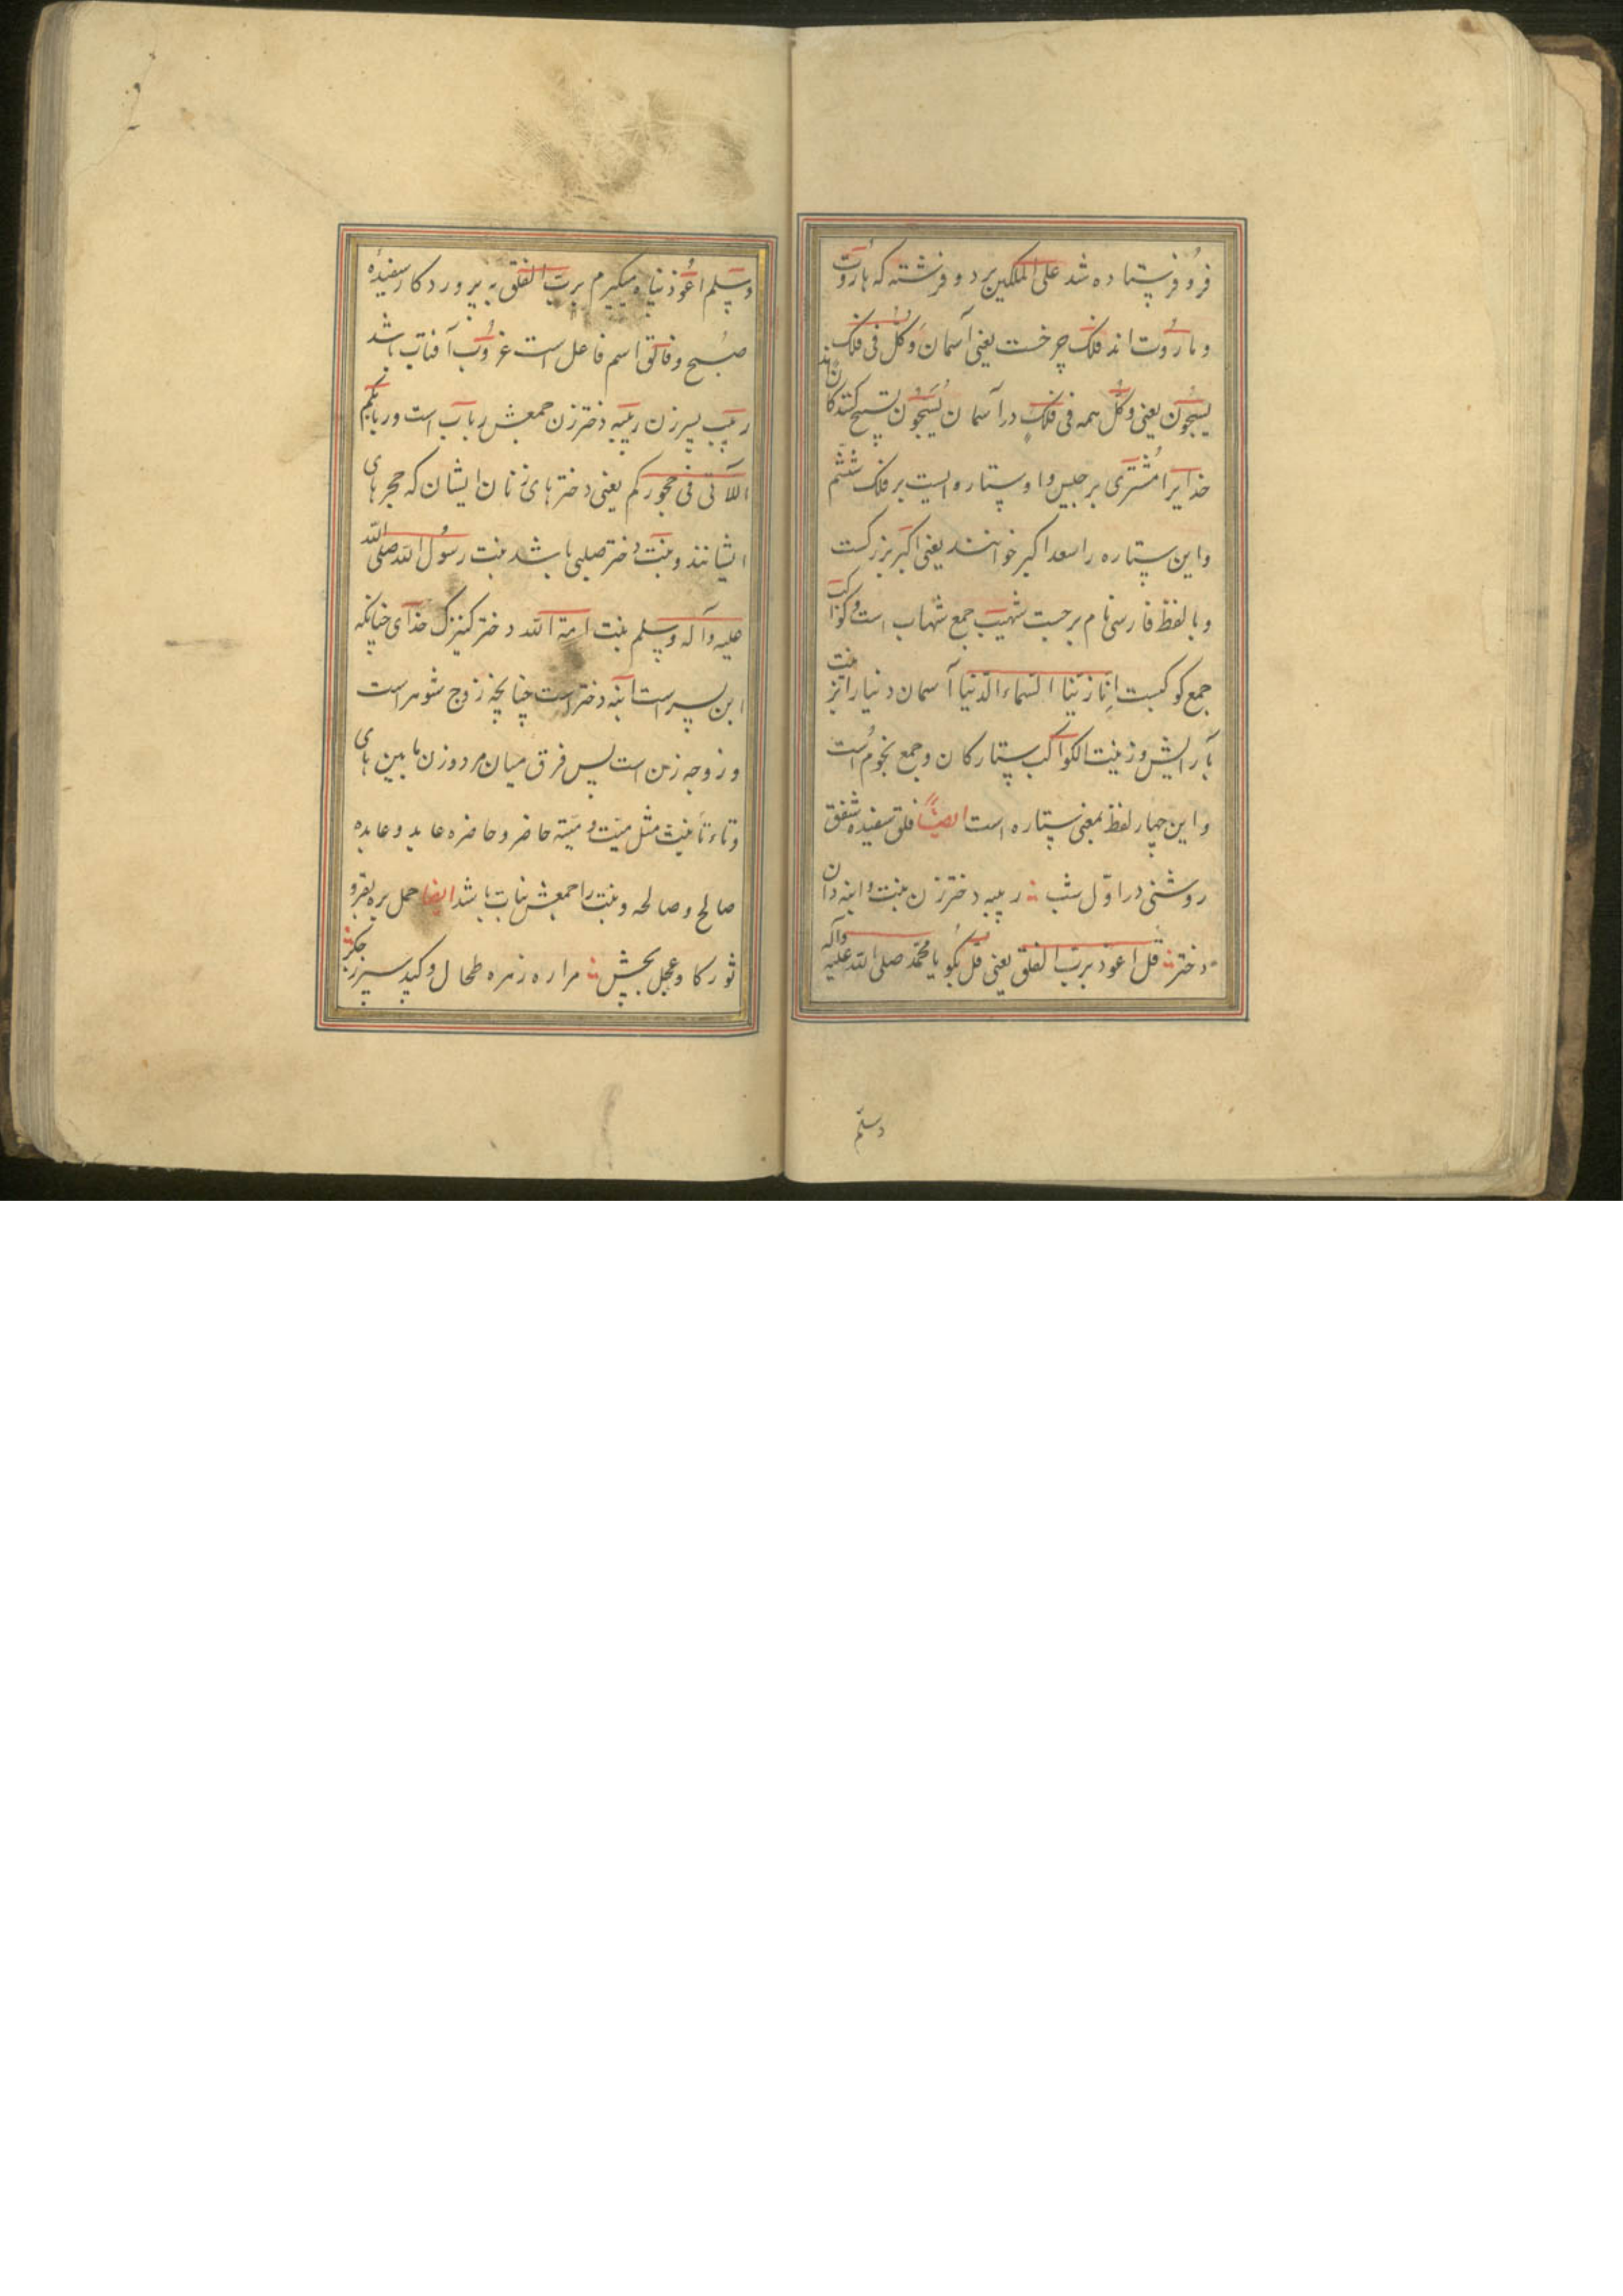 فرو فرستاده شد علی الملکین بر دو فرشته که هاروت
و ماروت اند فلک چرخست یعنی آسمان وکل فی فلک
یسبحون یعنی وکل همه فی فلک در آسمان یسبحون تسبیح کنندکانند
خدایرا مشتری برجیس و او ستاره ایست بر فلک ششم
و این ستاره را سعد اکبر خوانند یعنی اکبر بزرکست
و با لفظ فارسی نام برجیست شهب جمع شهاب است و کواکب
جمع کوکبست انا زینا السماء الدنیا آسمان دنیا را بزینت
بآرایش و زینت الکواکب ستارکان و جمع نجوم است
و این چهار لفظ بمعنی ستاره است ایضاً فلق سفیده شفق
روشنی در اوّل شب ربیبه دختر زن بنت و ابنه دان
دختر قل اعوذ برب الفلق یعنی قل بکو یا محمّد صلی الله علیه وآله
وسلم
وسلم اعوذ پناه میکیرم برب الفلق به پروردکار سفیده
صبح و فالق اسم فاعل است غروب آفتاب باشد
ربیب پسر زن ربیبه دختر زن جمعش ربایب است وربائبکم
اللاتی فی حجورکم یعنی دخترهای زنان ایشان که حجرهای
ایشانند و بنت دختر صلبی باشد بنت رسول الله صلی الله
علیه وآله وسلم بنت امة الله دختر کنیزک خدای چنانکه
ابن پسر است ابنه دختر است چنانچه زوج شوهر است
و زوجه زن است پس فرق میان مرد و زن مابین های
و تاء تأنیث مثل میّت و میّته حاضر و حاضره عابد و عابده
صالح و صالحه و بنت را جمعش بنات باشد ایضا حمل بره بقر و
ثور کاو عجل بچش مراره زهره طحال و کبد سپرز جکر